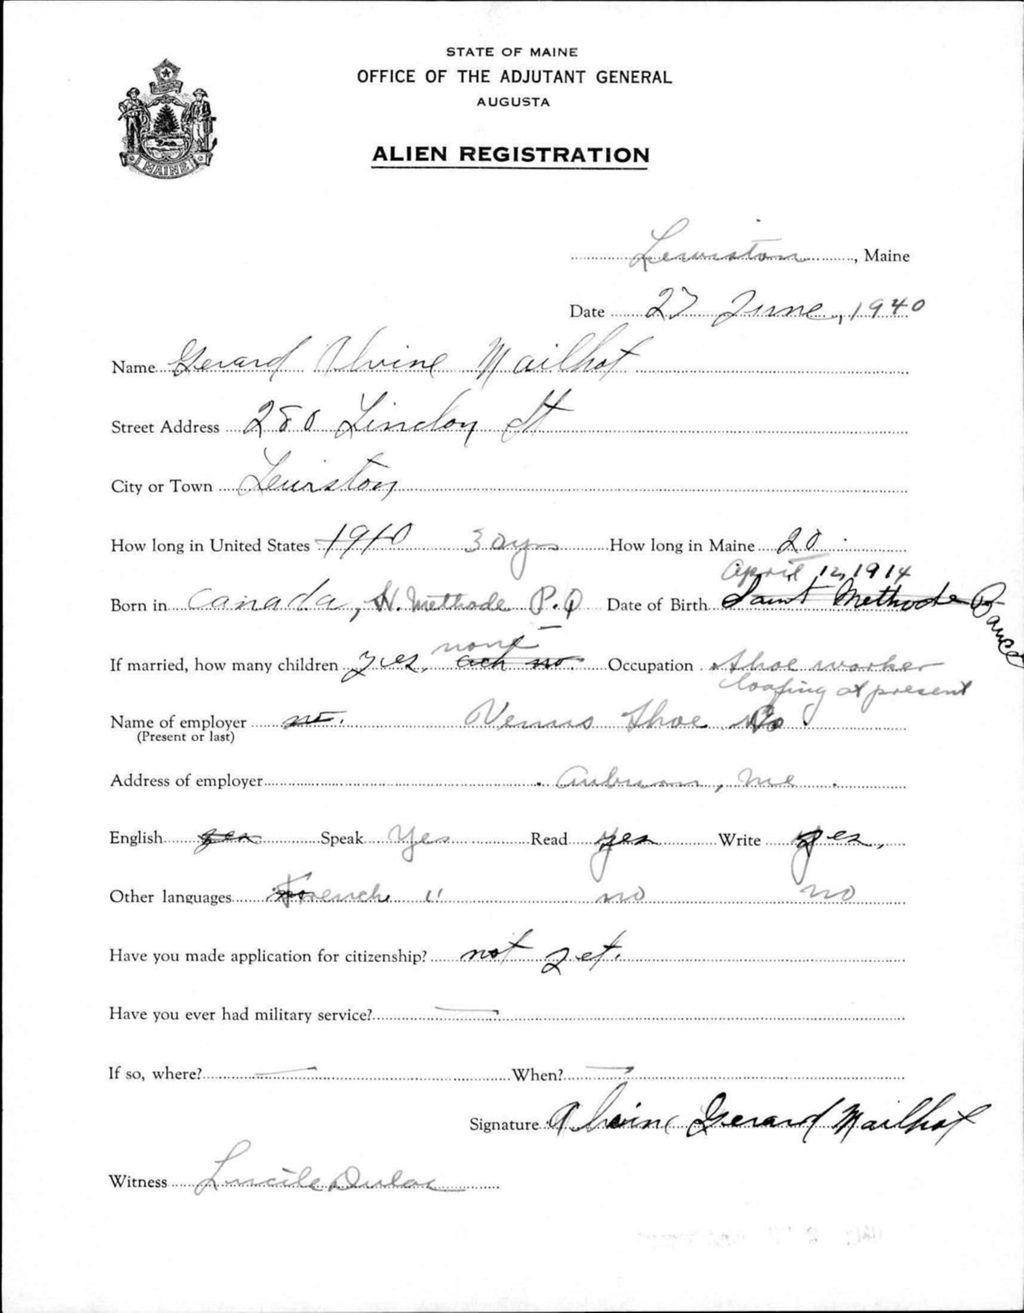 STATE OF MAINE
OFFICE OF THE ADJUTANT GENERAL
AUGUSTA
ALIEN REGISTRATION
MAINE
Lewiston, Maine
Date 27 June, 1940
Name Gerard Alvine Mailhot
Street Address 280 Lincoln St
City or Town Lewiston
How long in United States 1910 30 yrs How long in Maine 20
April 12, 1914
Born in Canada, St. Methode P.Q Date of Birth Saint Methode
none
If married, how many children yes, no Occupation Shoe worker
loafing at present
Name of employer no. Venus Shoe Co
(Present or last)
Address of employer Auburn, Me.
English yes Speak Yes Read yes Write yes,
Other languages French " no no
Have you made application for citizenship? not yet.
Have you ever had military service? —
If so, where? — When? —
Signature Alvine Gerard Mailhot
Witness Lucile Dulac